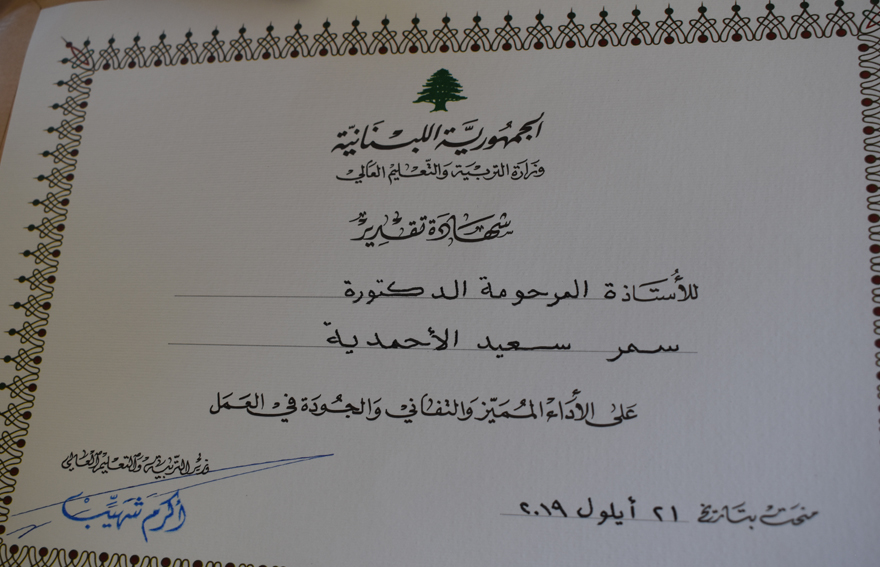 الجمهوريّة اللبنانيّة
وزارة التربية والتّعليم العالي
شهادة تقدير
للأُستاذة المرحومة الدكتورة
سمر سعيد الأحمدية
على الأداء المُميّز والتفاني والجودة في العمل
وزير التربية والتعليم العالي
أكرم شهيّب
منحت بتاريخ ٢١ أيلول ٢٠١٩